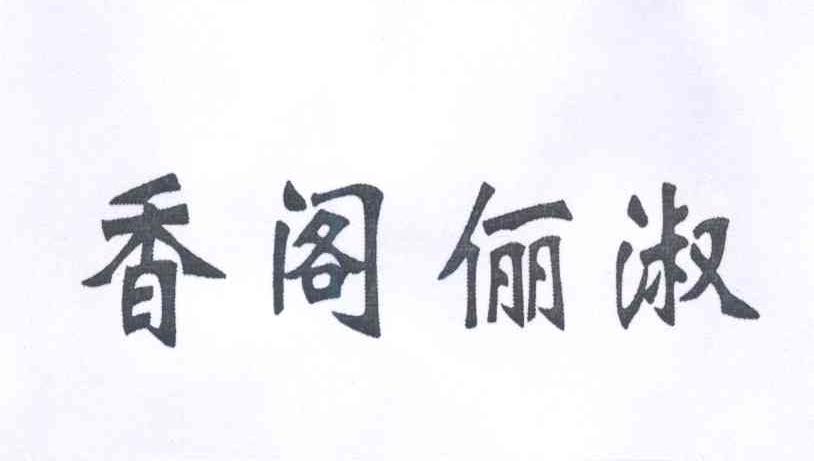 香阁俪淑